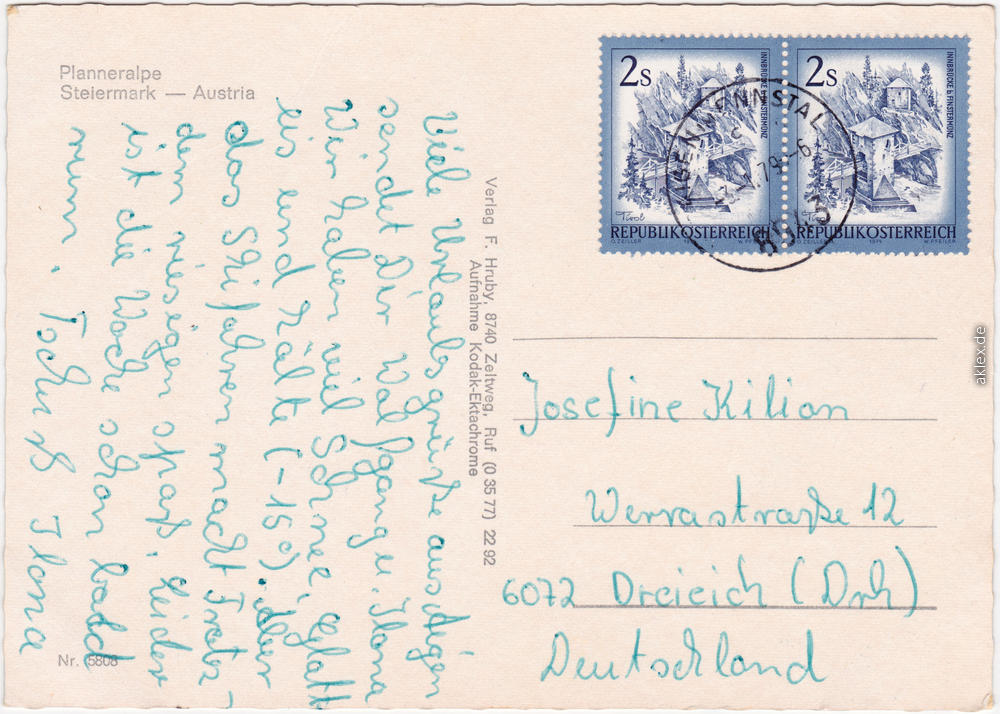 Planneralpe
Steiermark — Austria
Viele Urlaubsgrüße aus
sendet Dir Wolfgang u. Ilona
Wir haben viel Schnee, Glatt-
eis und Kälte (-15c). Aber
das Skifahren macht trotz-
dem riesigen spaß. Leider
ist die Woche schon bald
rum. Tschüß Ilona
Nr. 5808
Verlag F. Hruby, 8740 Zeltweg, Ruf (0 35 77) 22 92
Aufnahme Kodak-Ektachrome
2s
INNBRÜCKE b. FINSTERMÜNZ
Tirol
REPUBLIK ÖSTERREICH
O. ZEILER 1974 W. PFEILER
2s
INNBRÜCKE b. FINSTERMÜNZ
Tirol
REPUBLIK ÖSTERREICH
O. ZEILER 1974 W. PFEILER
Josefine Kilian
Werrastraße 12
6072 Dreieich (Drh)
Deutschland
aklex.de